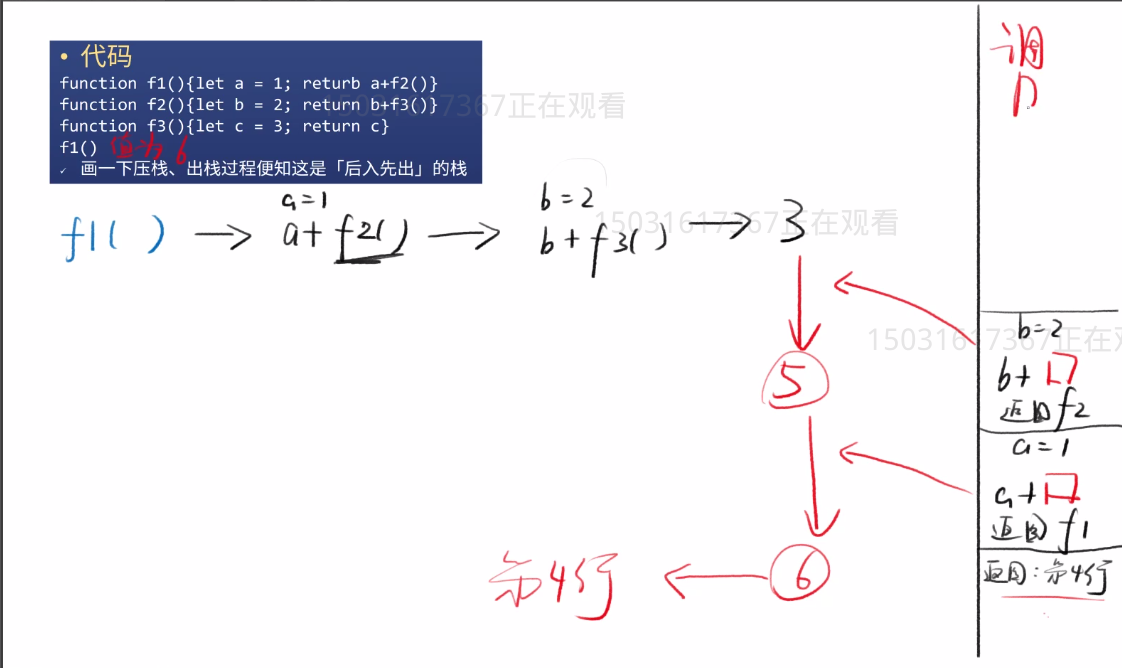 • 代码
function f1(){let a = 1; returb a+f2()}
function f2(){let b = 2; return b+f3()}
function f3(){let c = 3; return c}
f1() 值为 6
✓ 画一下压栈、出栈过程便知这是「后入先出」的栈
15031617367正在观看
a=1
b=2
f1( ) → a+f2() → b+f3( ) → 3
15031617367正在观看
5
6
第4行
调
15031617367正在观
b=2
b+口
返回f2
a=1
a+口
返回f1
返回:第4行